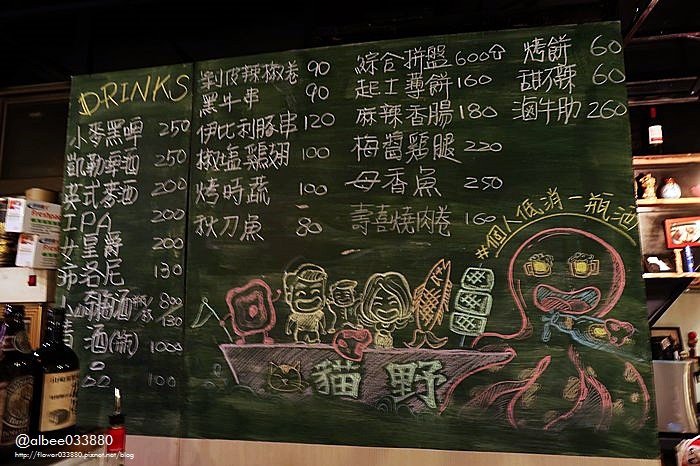 DRINKS
小麥黑啤 250
凱勒啤酒 250
英式麥酒 200
IPA 200
女皇爵 200
布洛尼 130
800
130
酒(瓶) 1000
100
剝皮辣椒卷 90
黑牛串 90
伊比利豚串 120
椒塩鷄翅 100
烤時蔬 100
秋刀魚 80
綜合拼盤 600
起士薯餅 160
麻辣香腸 180
梅醬鷄腿 220
母香魚 250
壽喜燒肉卷 160
烤餅 60
甜不辣 60
滷牛肋 260
#個人低消一瓶酒
貓野
@albee033880
http://flower033880.pixnet.net/blog